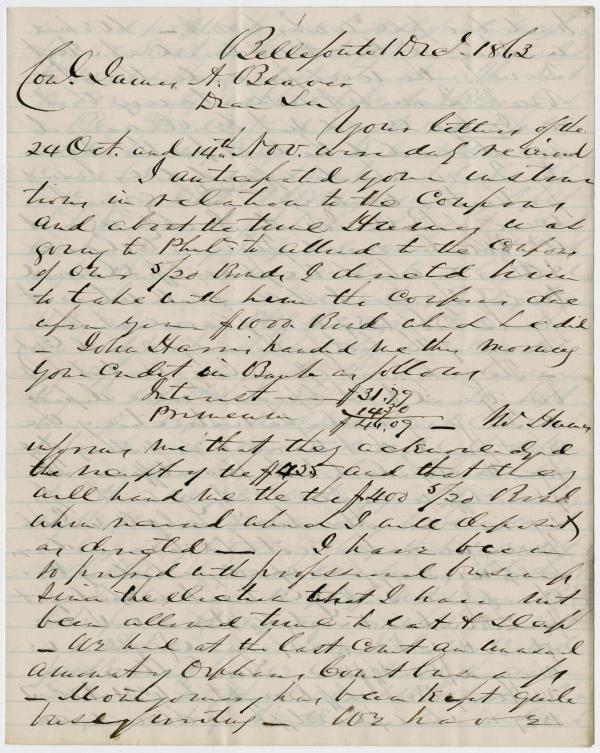 Bellefonte 1 Decr. 1863
Conl. James A. Beaver
Dear Sir
Your letters of the
24 Oct. and 14th Nov. were duly received
I anticipated your instruc
tions in relation to the Coupons
and about the time Harris was
going to Phila. to attend to the Coupons
of our 5/20 Bonds I directed him
to take with him the Coupons due
upon your $1000 Bond which he did
— John Harris handed me this morning
your credit in Bank as follows
Interest — $31.79
Premium 14.30
$46.09 — Mr Harris
informs me that they acknowledged
the receipt of the $425 and that they
will hand me the the $400 5/20 Bond
when received which I will deposit
as directed — I have been
so pressed with professional business
since the election that I have not
been allowed time to eat & sleep
— We had at the last Court an unusual
amount of Orphans Court business
— Montgomery has been kept quite
busy writing — We have